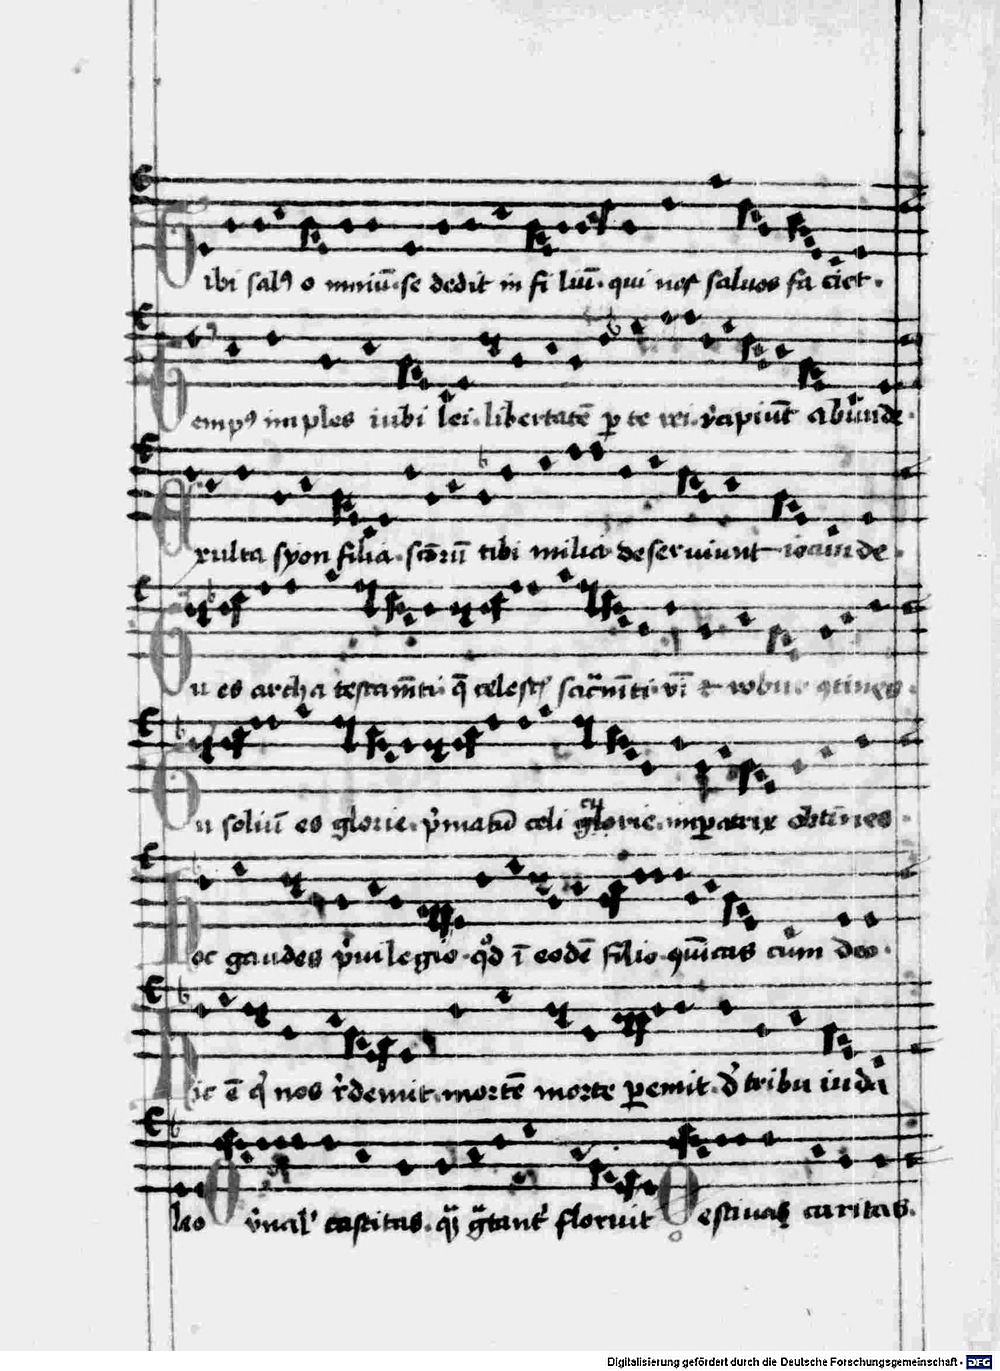 Tibi salꝰ o mniū · se dedit in fi liū · qui nos saluos fa ciet ·
Tempꝰ imples iubi lei · libertatē p te rei · rapiūt abunde ·
Exulta syon filia · scōrū tibi milia deseruiunt iocunde ·
Tu es archa testam̄ti · q̄ celest sacm̄ti · vī & robur 9tines ·
Tu soliū es glorie · pͥmatū celi glorie · impatrix obtines ·
Hoc gaudes pͥuilegio · qd ī eodē filio · cum deo ·
Hic ē q nos rdemit · mortē morte pemit · d tribu iuda
leo O castitas · floruit O estiuas caritas ·
Digitalisierung gefördert durch die Deutsche Forschungsgemeinschaft - DFG